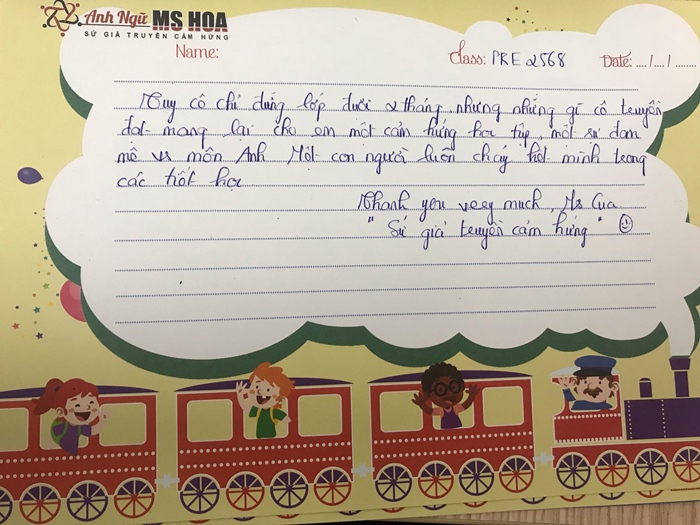 Anh Ngữ MS HOA
SỨ GIẢ TRUYỀN CẢM HỨNG
Name:
Class: PRE 2568
Date: ..../..../........
Tuy cô chỉ đứng lớp dưới 2 tháng, nhưng những gì cô truyền
đạt mang lại cho em một cảm hứng học tập, một sự đam
mê vs môn Anh. Một con người luôn cháy hết mình trong
các tiết học
Thank you very much, Ms Cua
"Sứ giả truyền cảm hứng" ☺